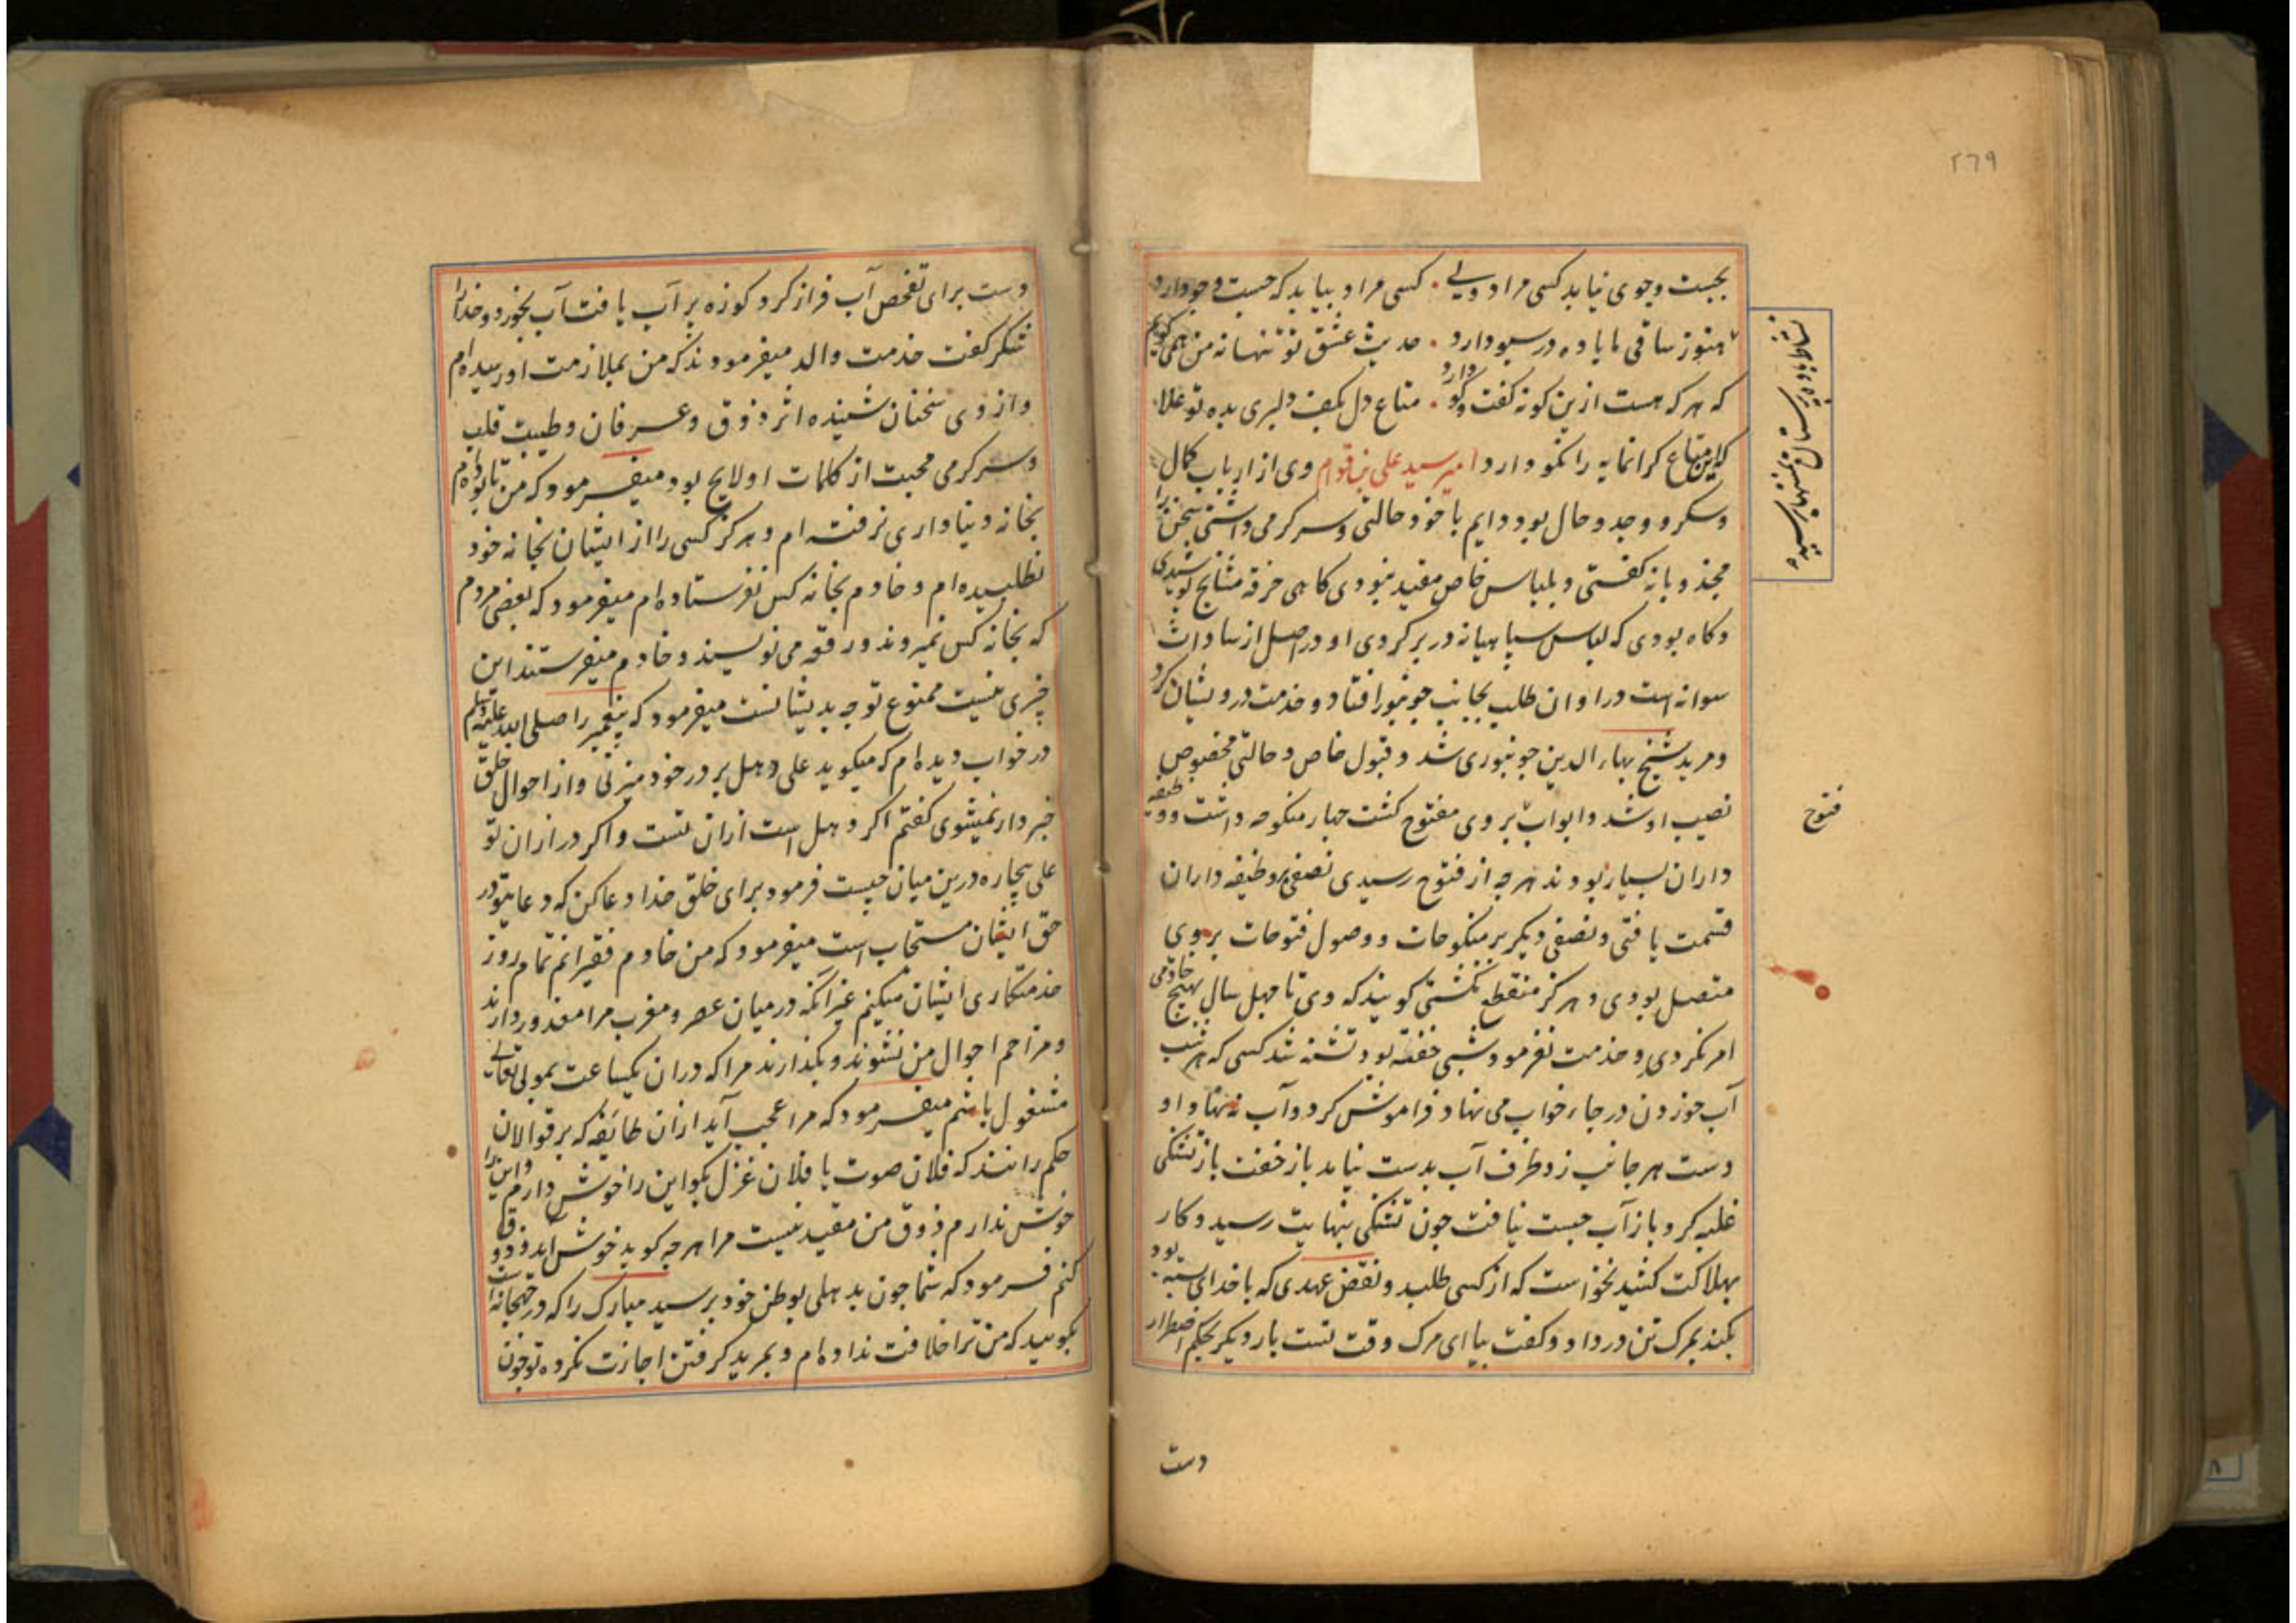 ۲٦۹
بجست وجوی نیابد کسی مراد ولی . کسی مراد بیابد که جست وجو دارد
هنوز ساقی ما باده در سبو دارد . حدیث عشق تو تنها نه من همی گویم
که هر که هست ازین گونه گفت وگو دارد . متاع دل بکف دلبری بده تو علا
که این متاع گرانمایه را نکو دارد امیر سید علی بن قوام وی از ارباب کمال
وسکر و وجد وحال بود دایم با خود حالتی وسرگرمی داشتی سخن را
مجذوبانه گفتی و بلباس خاص مقید نبودی گاهی خرقه مشایخ پوشیدی
وگاه بودی که لباس سپاهیانه در بر کردی او در اصل از سادات
سوانه است در اوان طلب بجانب جونپور افتاد و خدمت درویشان کرد
ومرید شیخ بهاء الدین جونپوری شد وقبول خاص وحالتی مخصوص
نصیب او شد وابواب بر وی مفتوح گشت چهار منکوحه داشت ووظیفه
داران بسیار بودند هرچه از فتوح رسیدی نصفی بر وظیفه داران
قسمت یافتی ونصفی دیگر بر منکوحات ووصول فتوحات بر وی
متصل بودی وهرگز منقطع نگشتی گویند که وی تا چهل سال هیچ خادمی
امر نکردی وخدمت نفرمود شبی خفته بود تشنه شد کسی که هر شب
آب خوردن در جاء خواب می نهاد فراموش کرد وآب ننهاد او
دست هر جانب زد ظرف آب بدست نیامد باز خفت باز تشنگی
غلبه کرد باز آب جست نیافت چون تشنگی بنهایت رسید وکار
بهلاکت کشید نخواست که از کسی طلبد ونقض عهدی که با خدای بسته بود
بکند بمرگ تن در داد وگفت بیا ای مرگ وقت تست بار دیگر بحکم اضطرار
فتوح
دست
دست برای تفحص آب فراز کرد کوزه پر آب یافت آب بخورد وخدا را
شکر گفت خدمت والد میفرمودند که من بملازمت او رسیده ام
واز وی سخنان شنیده اثر ذوق وعرفان وطیبت قلب
وسرگرمی محبت از کلمات او لایح بود میفرمود که من تا بوده ام
بخانه دنیاداری نرفته ام وهرگز کسی را از ایشان بخانه خود
نطلبیده ام وخادم بخانه کس نفرستاده ام میفرمود که بعضی مردم
که بخانه کس نمیروند ورقعه می نویسند وخادم میفرستند این
چیزی نیست ممنوع توجه بدیشانست میفرمود که پیغمبر را صلی الله علیه وسلم
در خواب دیده ام که میگوید علی دهل بر در خود میزنی واز احوال خلق
خبردار نمیشوی گفتم اگر دهل است ازان تست واگر در ازان تو
علی بیچاره درین میان چیست فرمود برای خلق خدا دعا کن که دعای تو در
حق ایشان مستجاب است میفرمود که من خادم فقیرانم تمام روز
خدمتگاری ایشان میکنم غیر آنکه در میان عصر ومغرب مرا معذور دارند
ومزاحم احوال من نشوند وبگذارند مرا که دران یکساعت بمولی تعالی
مشغول باشم میفرمود که مرا عجب آید ازان طائفه که بر قوالان
حکم رانند که فلان صوت یا فلان غزل بگو این را خوش دارم واین را
خوش ندارم ذوق من مقید نیست مرا هرچه گوید خوش آید وذوق
کنم فرمود که شما چون بدهلی بوطن خود برسید مبارک را که در جهنجانه است
بگویید که من ترا خلافت نداده ام وبمرید گرفتن اجازت نکرده تو چون